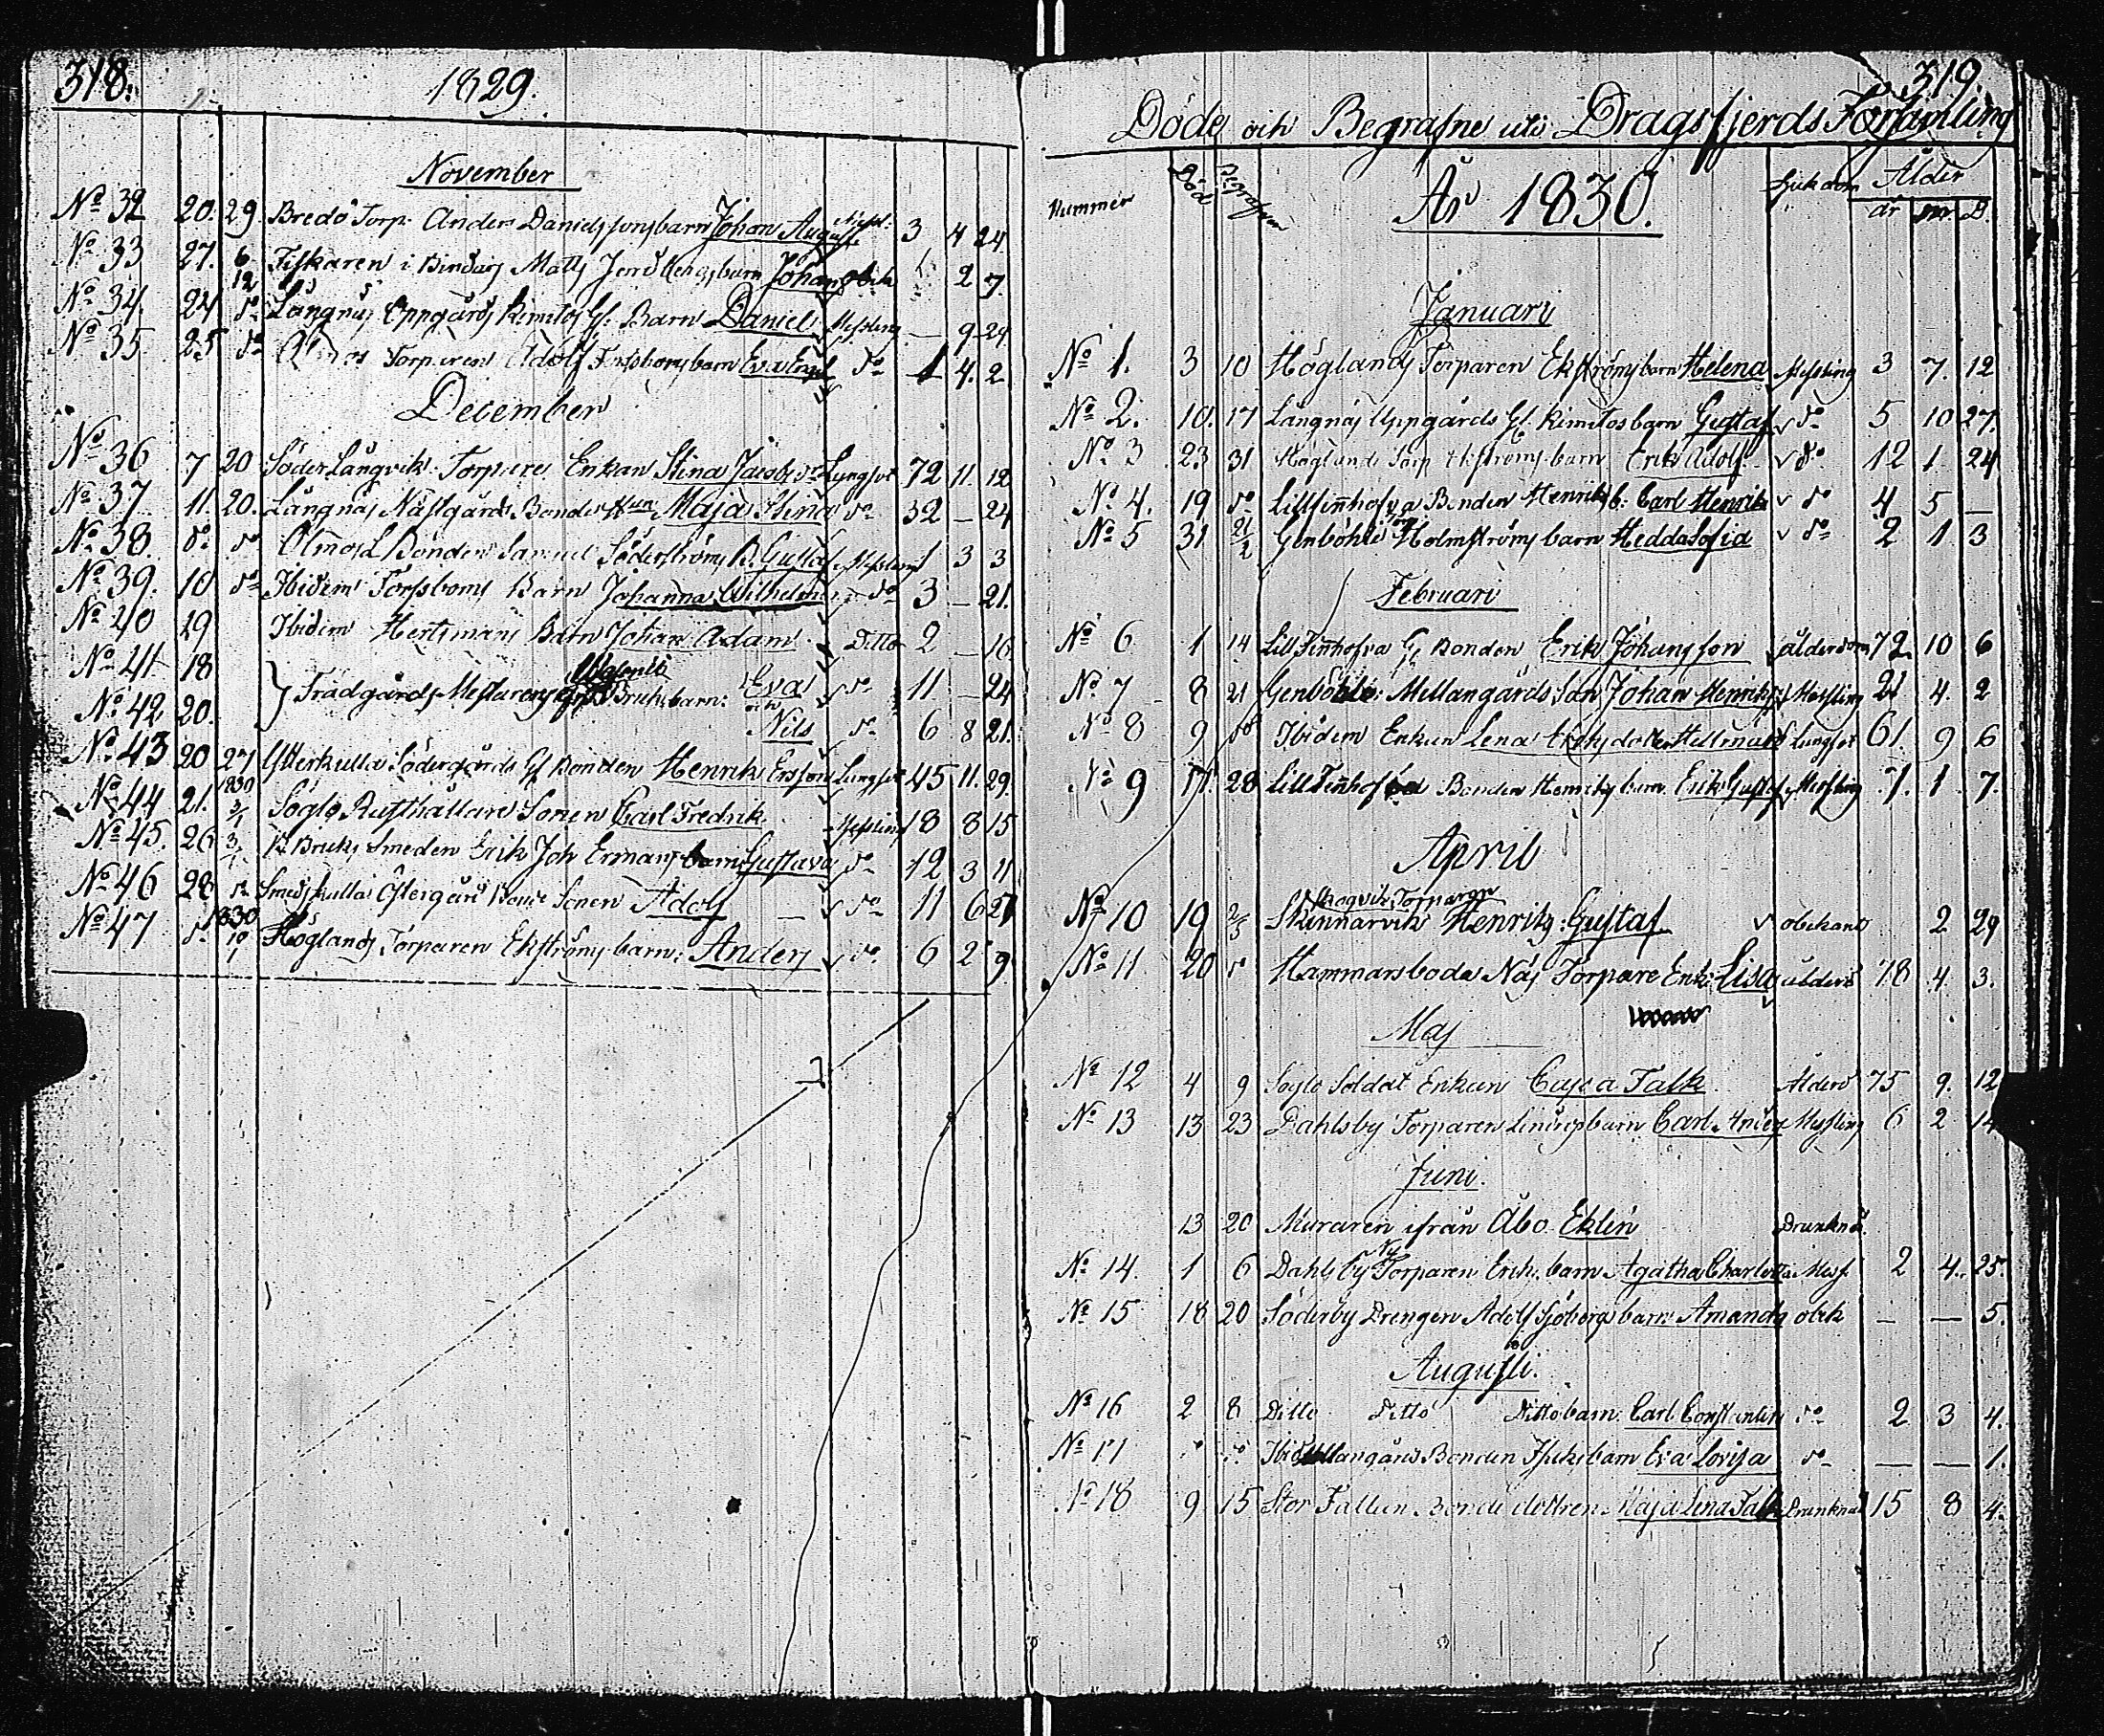 318.
1829.
November
No 32 20. 29. Bredö Torp. Anders Danielssons barn Johan August Messl: 3 4 24
No 33 27. 6/12 Fiskaren i Matts barn Johan obek 2 7.
No 34. 24 do Långnäs Oppgårds Kimitos Gl. Barn Daniel Messling — 9 24
No 35 25 do Torparen Adolf Forssboms barn Eva do 1 4. 2
December
No 36 7 20 Söder Långvik Torpare Enkan Stina Jacobs dr Lungsot 72 11. 12
No 37 11. 20. Långnäs Nästgårds Bonde Hun Maja Stina do 32 — 24
No 38. do do Ölmos Bonden Samuel Söderströms B. Gustaf Messling 1 3 3
No 39. 10 do Ibidem Forssboms Barn Johanna Wilhelm do 3 — 21.
No 40 29 Ibidem Hertsmans Barn Johan Adam Ditto 2 — 16.
No 41 18 } Trädgårds Mästarens Bruk barn: Eva do 11 — 24
och
No 42 20. Nils do 6 8 21.
No 43 20 27 Ytterkulla Södergårds Gl Bonden Henrik Ersson Lungsot 45 11. 29.
1830
No 44 21. 3/1 Söglö Rusthållare Sonen Carl Fredrik Messling 18 8 15
No 45. 26 3/1 Bruks Smeden Erik Joh Ermans barn Gustava do 12 3 11
No 46 28 do Smedskulla Östergård Bonde Sonen Adolf do 11 6 27
1830
No 47 do 10/1 Höglands Torparen Ekströms barn: Anders do 6 2 9.
319.
Döde och Begrafne uti Dragsfjerds Församling
Nummer Död Begrafven År 1830. Sjukdom Ålder
år m. D.
Januari
No 1. 3 10 Höglands Torparen Ekströms barn Helena Messling 3 7. 12
No 2. 10. 17 Långnäs Uppgårds Gl. Kimitos barn Gustaf do 5 10 27.
No 3 23 31 Höglands Torp Ekströms barn Erik Adolf do 12 1 24
No 4. 19 do Lill Finnhofva Bonden Henriks b: Carl Henrik do 4 5 —
No 5 31 21/2 Genböhle Holmströms barn Hedda Sofia do 2 1 3
Februari
No 6 1 14 Lill Finnhofva Gl Bonden Erik Johansson ålderdom 72 10 6
No 7 8 21 Genböhle: Mellangårds Son Johan Henrik Messling 21 4. 2
No 8 9 do Ibidem Enkan Lena Eriks dotter Lungsot 61. 9 6
No 9 17. 28 Lill Finhofva Bonden Henriks barn Erik Gustaf Messling 7. 1 7.
April
Skogvik Torparen
No 10 19 2/5 Skinnarvik Henriks: Gustaf obekant 2 29
No 11 20 do Hammarsboda Näs Torpare Enk: Lisa ålderd 78 4. 3.
Maj
No 12 4 9 Söglö Soldat Enkan Cajsa Falk Ålderd 75 9. 12
No 13 13 23 Dahlsby Torparen Lindros barn Carl Anders Messling 6 2 14
Juni
13 20 Muraren ifrån Åbo Eklin Drunknad.
No 14. 1 6 Dahlsby Ny Torparen Eriks barn Agatha Charlotta Messl 2 4. 25.
No 15 18 20 Söderby Drengen Adolf Sjöbergs barn Amanda obek — — 5.
Augusti.
No 16 2 8 Ditto Ditto Ditto barn Carl Constantin do 2 3 4.
No 17 do do Ibid Mellangård Bonden Isaks barn Eva Lovisa do — — 1.
No 18 9 15 Stor Fallun Bonde dottren Maja Lena Falk Drunknad 15 8 4.